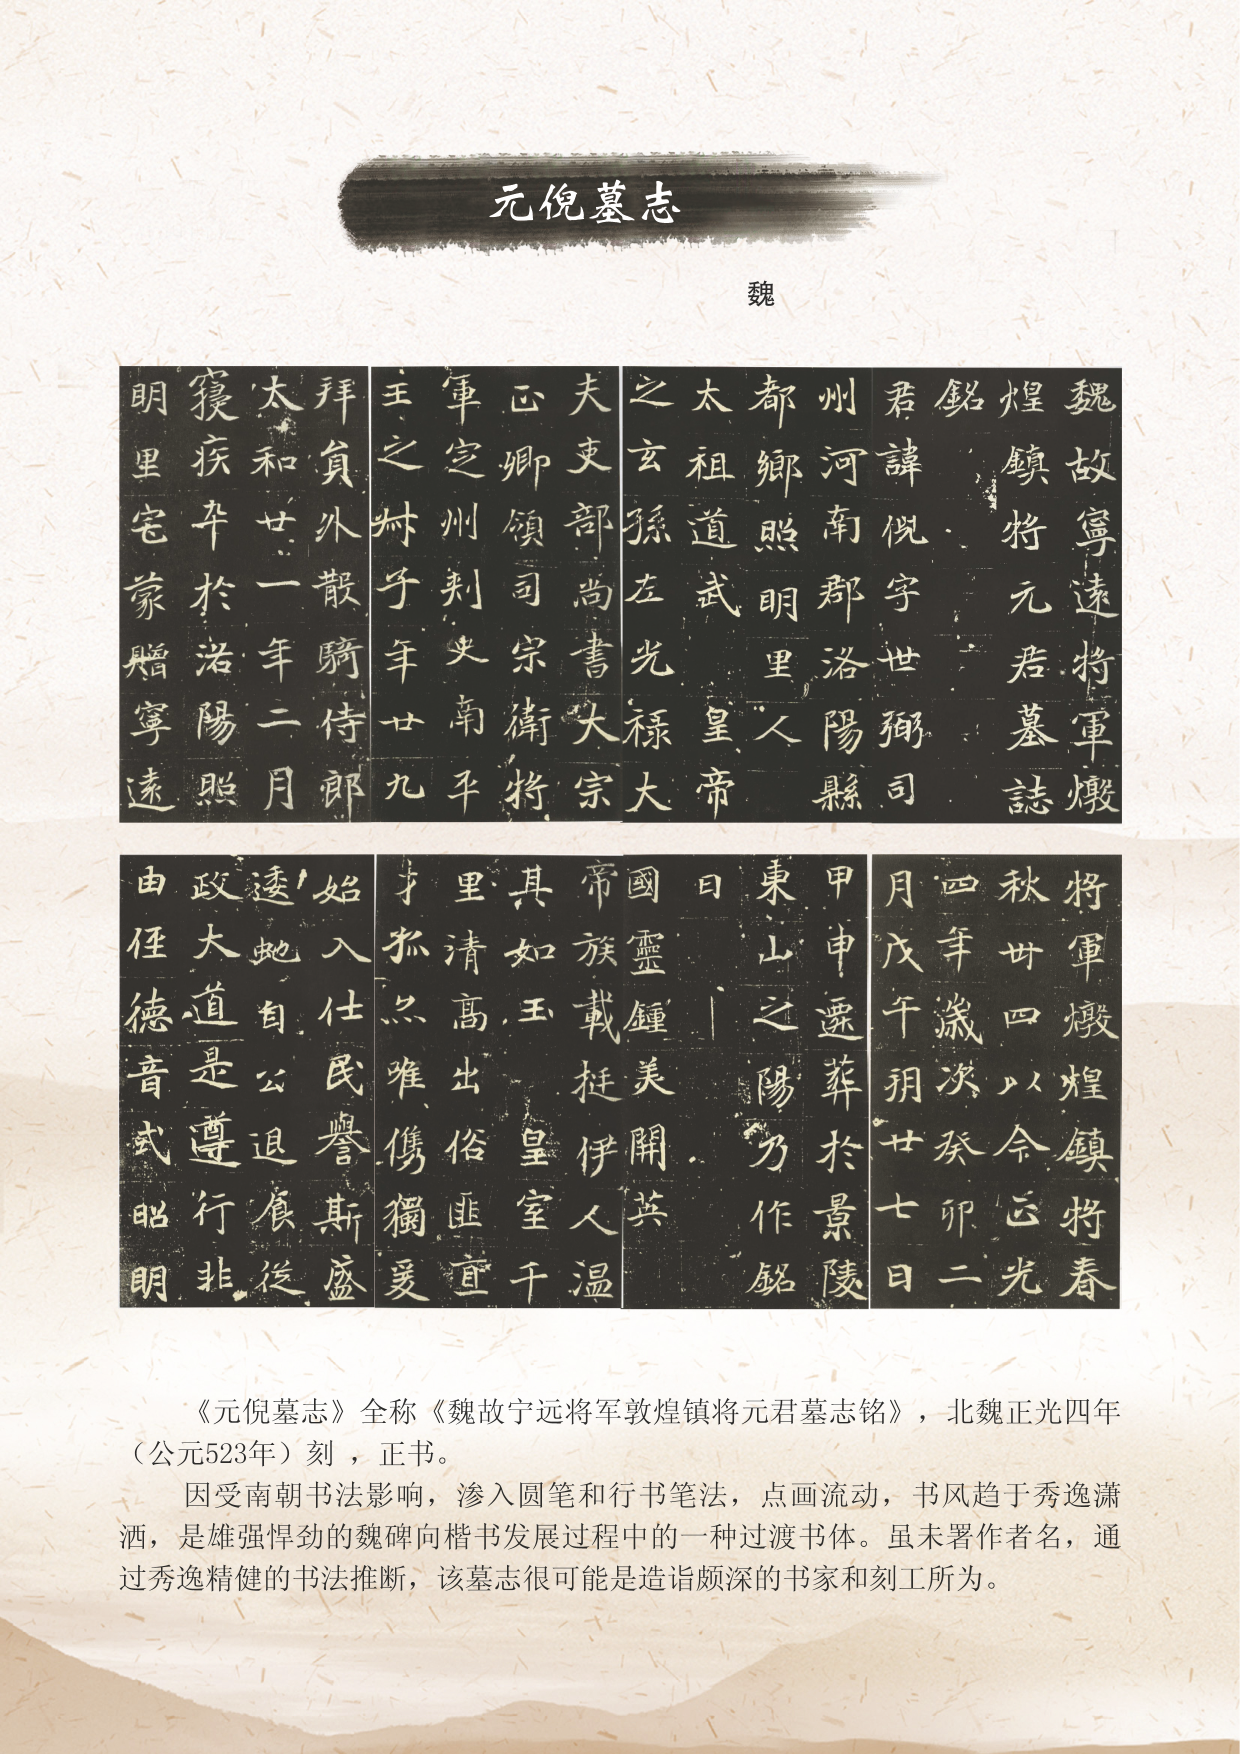 元倪墓志
魏
魏故寧遠將軍燉
煌鎮將元君墓誌
銘
君諱倪字世弼司
州河南郡洛陽縣
都鄉照明里人
太祖道武皇帝
之玄孫左光祿大
夫吏部尚書大宗
正卿領司宗衛將
軍定州刺史南平
王之叔子年廿九
拜員外散騎侍郎
太和廿一年二月
寑疾卒於洛陽照
明里宅蒙贈寧遠
將軍燉煌鎮將春
秋卅四以今正光
四年歲次癸卯二
月戊午朔廿七日
甲申遷葬於景陵
東山之陽乃作銘
曰
國靈鍾美開英
帝族載挺伊人温
其如玉皇室千
里清高出俗匪直
才孤亦唯儁獨爰
始入仕民譽斯盛
逶虵自公退食從
政大道是遵行非
由徑德音式昭明
《元倪墓志》全称《魏故宁远将军敦煌镇将元君墓志铭》，北魏正光四年
（公元523年）刻 ，正书。
因受南朝书法影响，渗入圆笔和行书笔法，点画流动，书风趋于秀逸潇
洒，是雄强悍劲的魏碑向楷书发展过程中的一种过渡书体。虽未署作者名，通
过秀逸精健的书法推断，该墓志很可能是造诣颇深的书家和刻工所为。